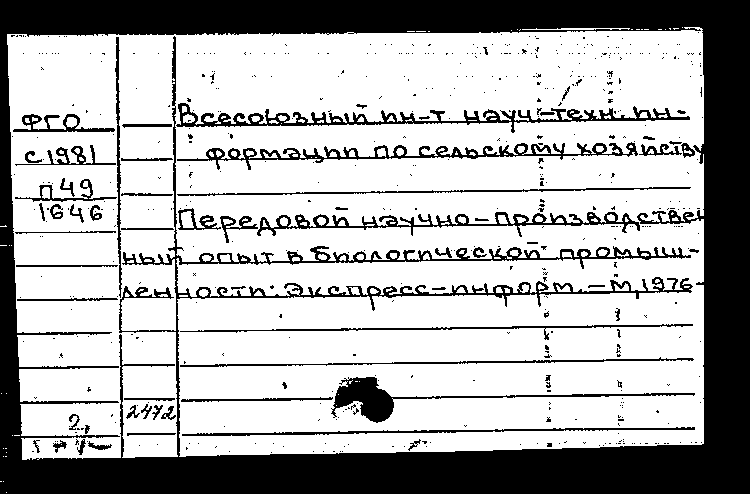 ФГО
с1981
п49
1646
Всесоюзный ин-т науч.-техн. ин-
формации по сельскому хозяйству
Передовой научно-производствен
ный опыт в биологической промыш-
ленности: Экспресс-информ. – М, 1976-
2472
2